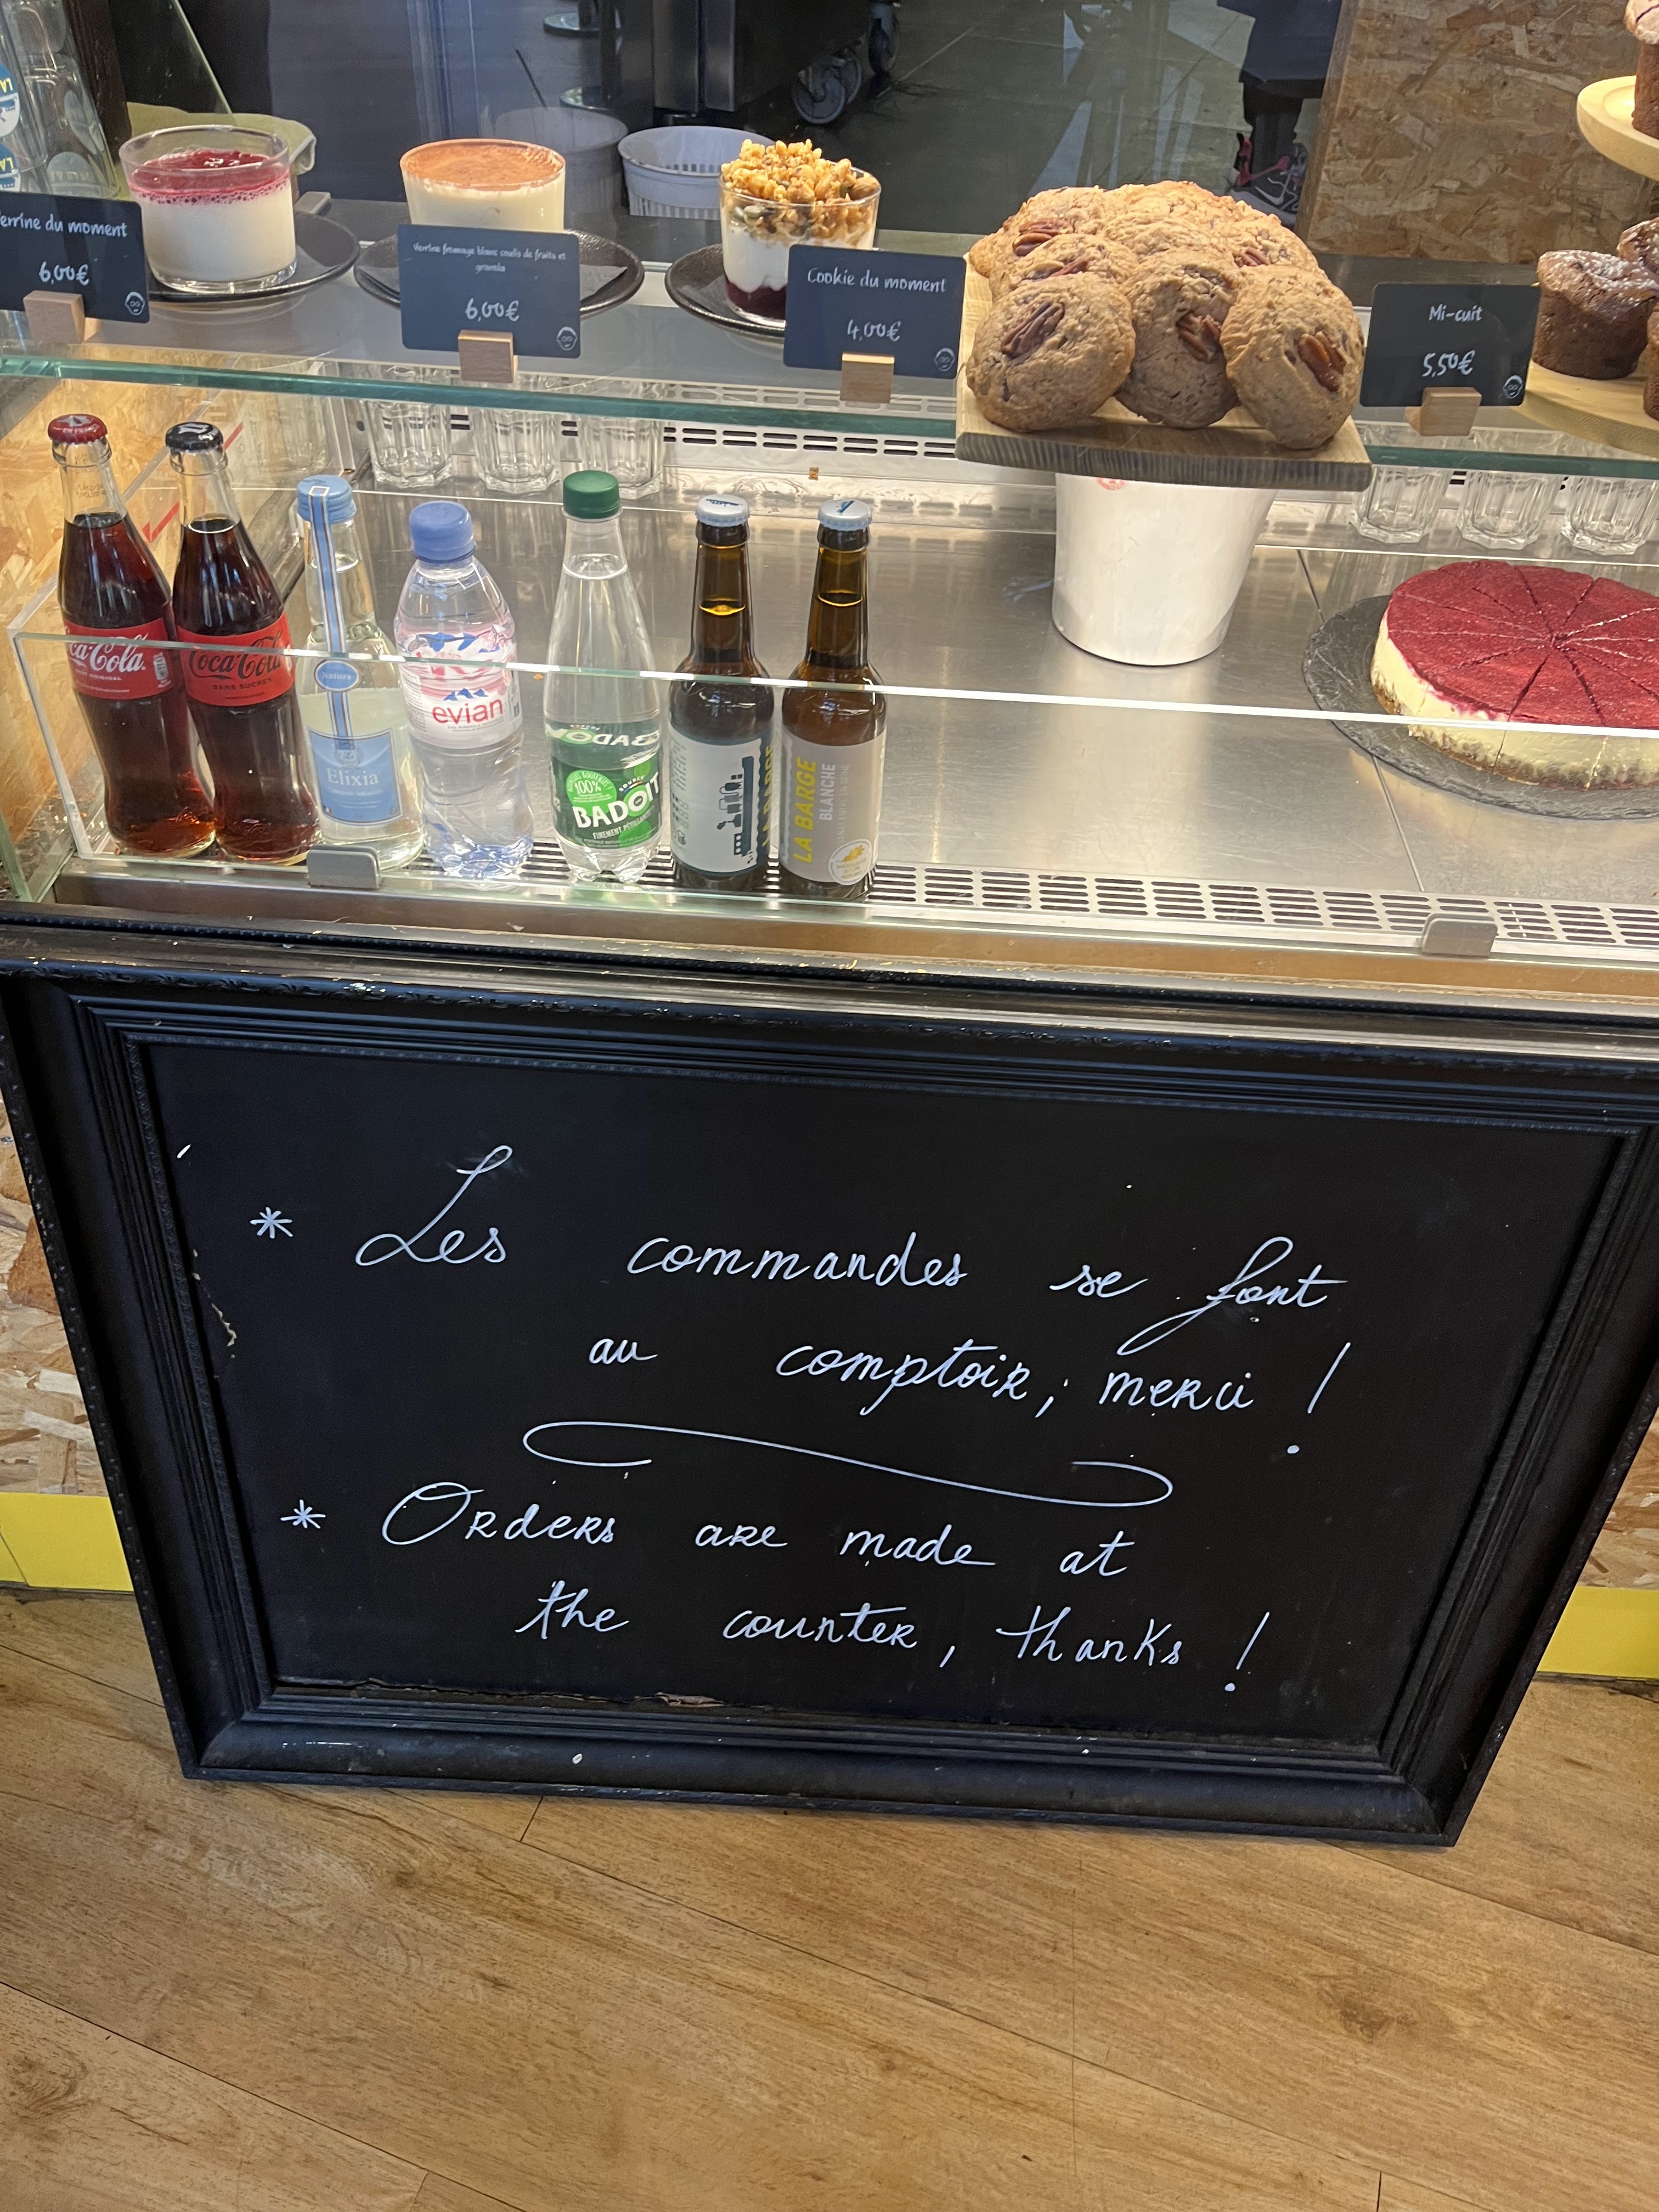 errine du moment
6,00€
Verrine fromage blanc coulis de fruits et
granola
6,00€
Cookie du moment
4,00€
Mi-cuit
5,50€
ca-Cola
Coca-Cola
SANS SUCRES
Nature
Elixia
evian
BADOIT
100%
BADOIT
FINEMENT PÉTILLANTE
LA BARGE
LA BARGE
BLANCHE
* Les commandes se font
au comptoir, merci !
* Orders are made at
the counter, thanks !